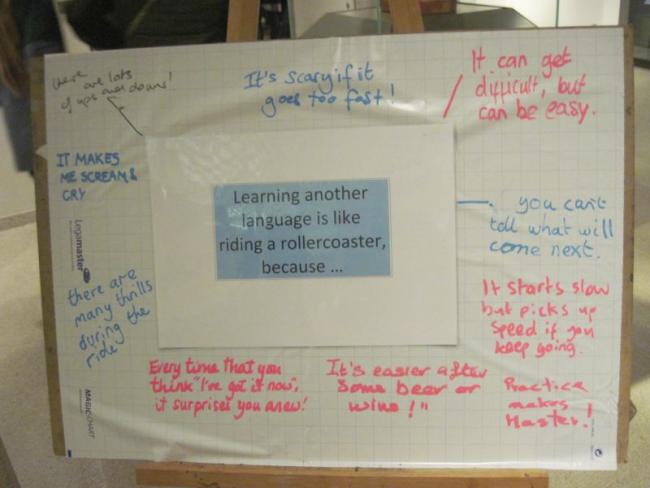 there
are lots
of ups and downs!
It's scary if it
goes too fast!
It can get
difficult, but
can be easy.
IT MAKES
ME SCREAM &
CRY
Learning another
language is like
riding a rollercoaster,
because ...
you can't
tell what will
come next.
Legamaster
there are
many thrills
during the
ride
It starts slow
but picks up
speed if you
keep going.
Every time that you
think "I've got it now",
it surprises you anew!
It's easier after
some beer or
wine!"
Practice
makes
Master!
MAGICCHART